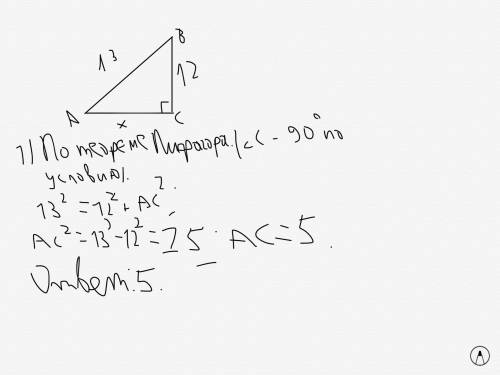 B
13
12
A
x
C
1) По теореме Пифагора. (∠C - 90° по
условию).
13² = 12² + AC².
AC² = 13² - 12² = 25. AC = 5.
Ответ: 5.
A